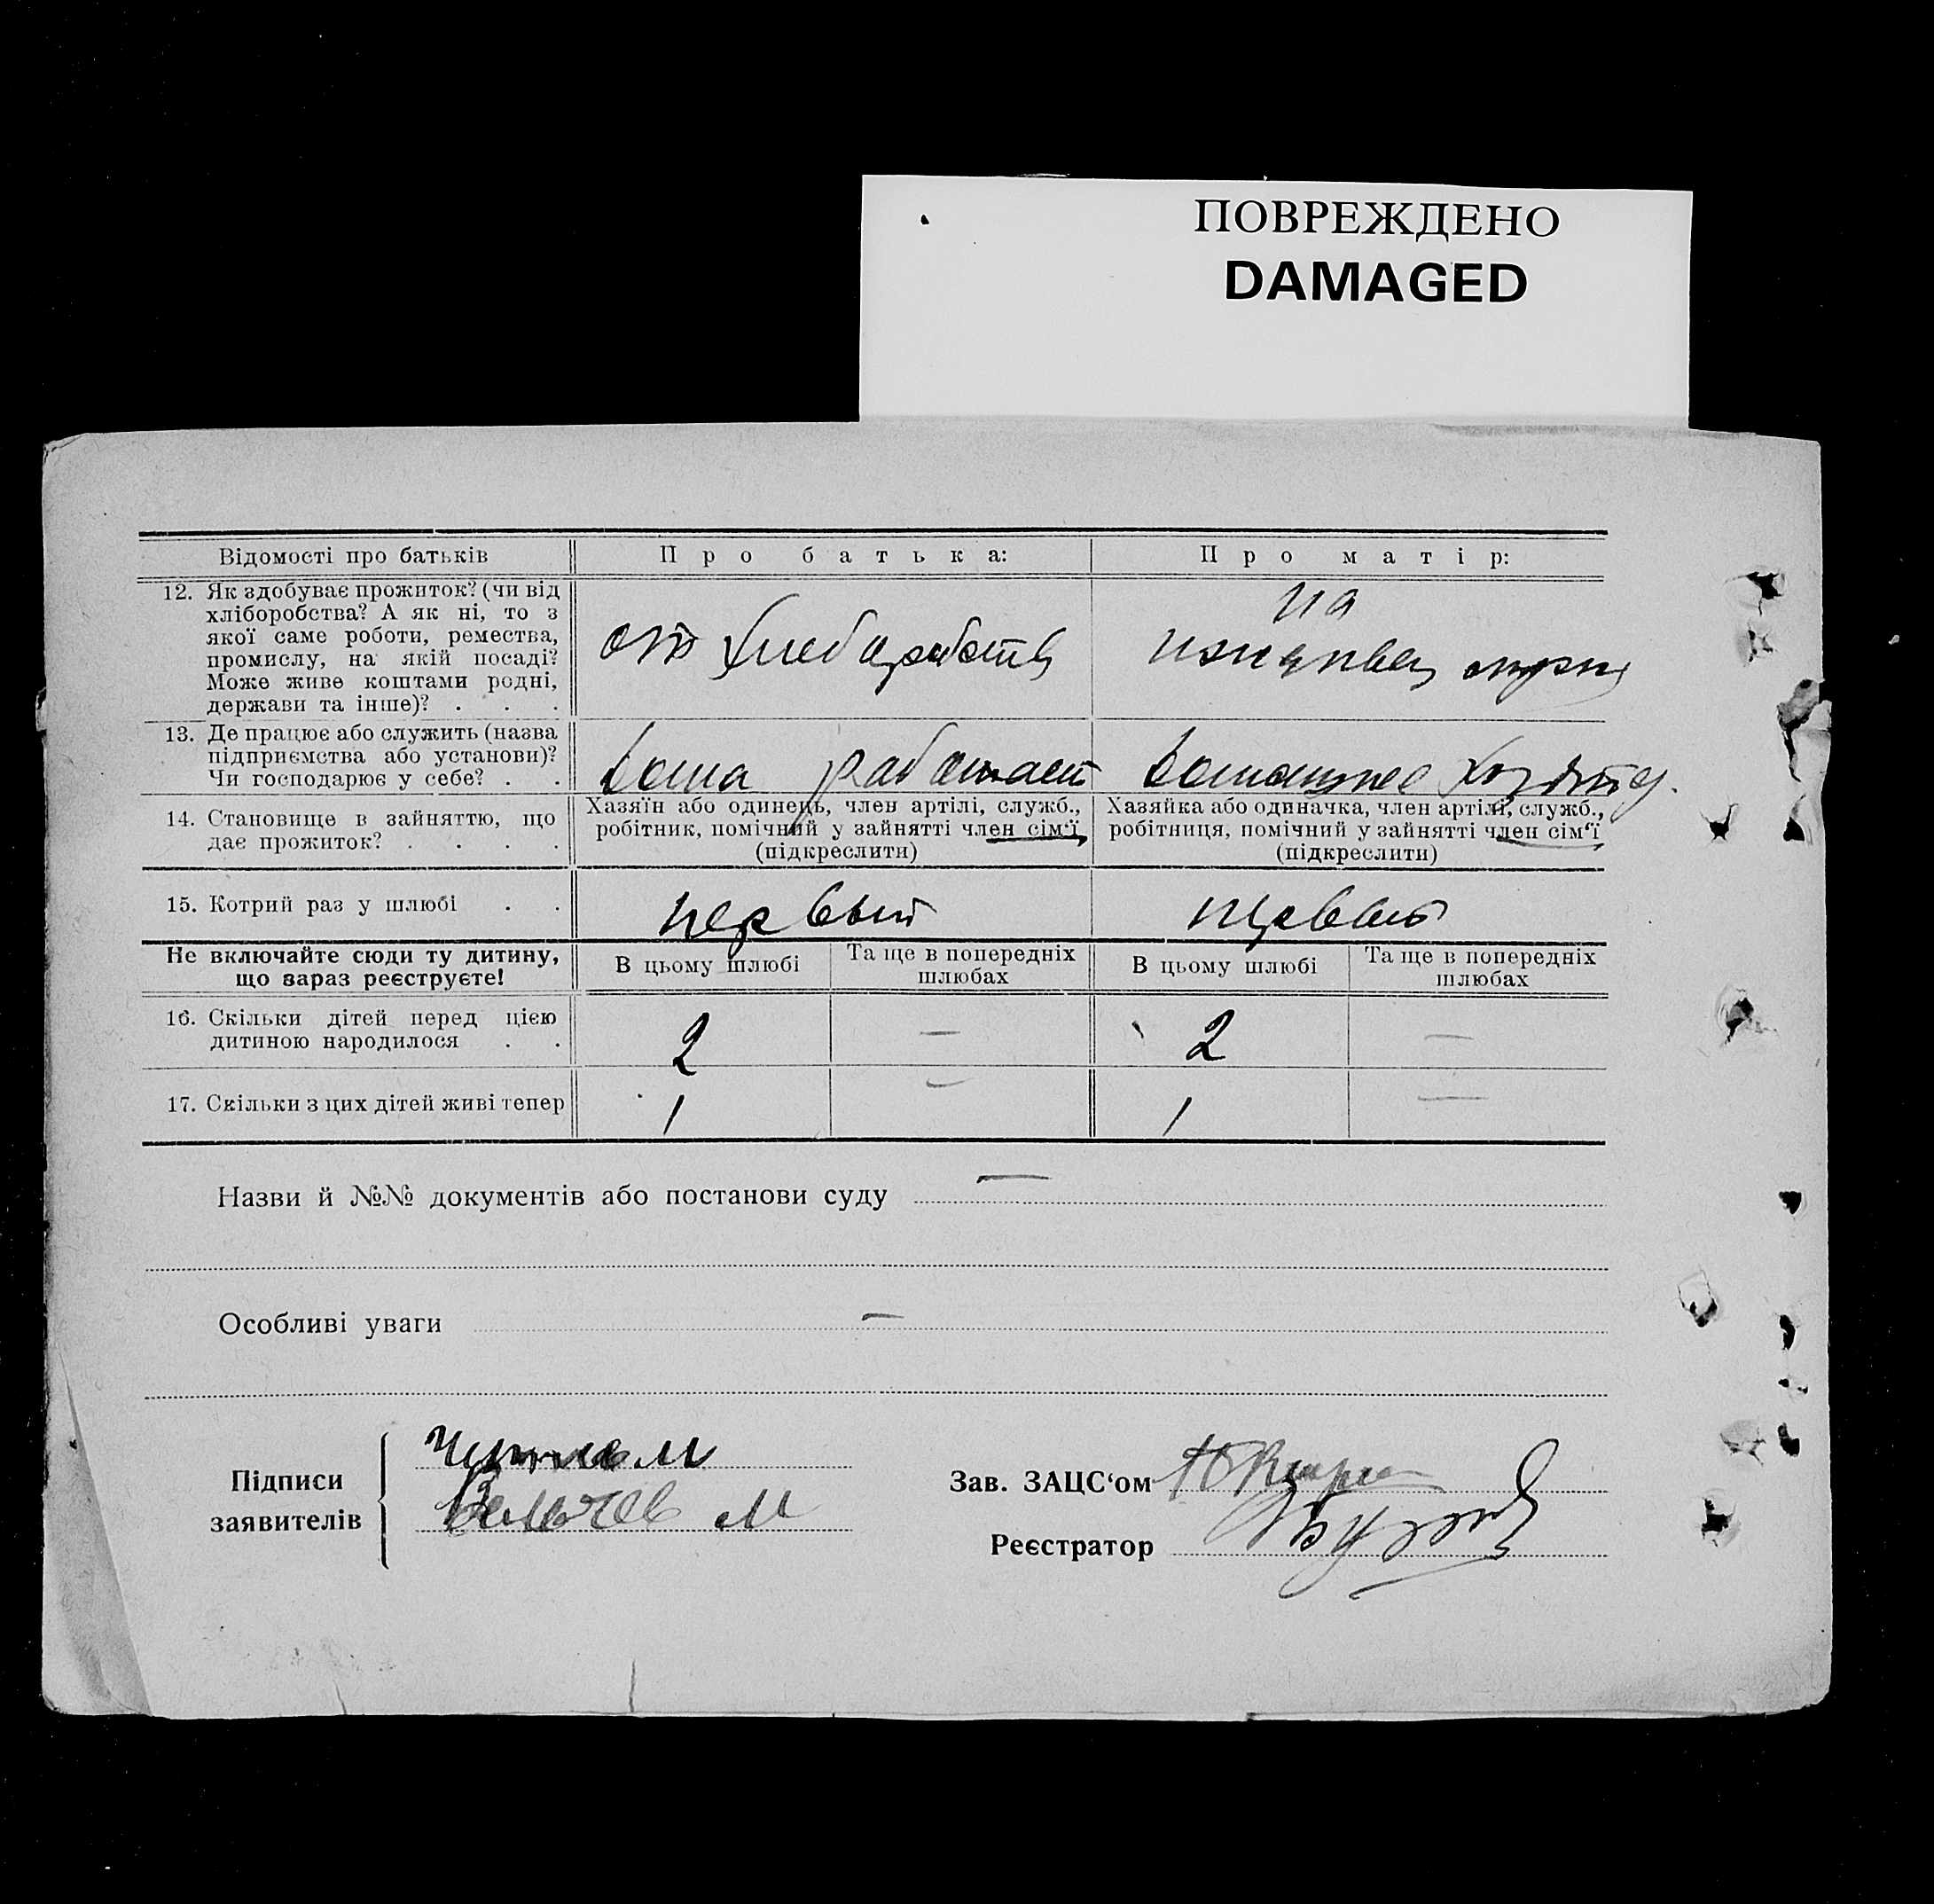 ПОВРЕЖДЕНО
DAMAGED
Відомості про батьків
Про батька:
Про матір:
12. Як здобуває прожиток? (чи від
хліборобства? А як ні, то з
якої саме роботи, ремества,
промислу, на якій посаді?
Може живе коштами родні,
держави та інше)? . . .
от хлебаработв
на
иждивен мужа
13. Де працює або служить (назва
підприємства або установи)?
Чи господарює у себе? . .
дома работает
домашнее
14. Становище в зайняттю, що
дає прожиток? . . . .
Хазяїн або одинець, член артілі, служб.,
робітник, помічний у зайнятті член сім'ї
(підкреслити)
Хазяйка або одиначка, член артілі, служб.,
робітниця, помічний у зайнятті член сім'ї
(підкреслити)
15. Котрий раз у шлюбі . .
первый
первый
Не включайте сюди ту дитину,
що зараз реєструєте!
В цьому шлюбі
Та ще в попередніх
шлюбах
В цьому шлюбі
Та ще в попередніх
шлюбах
16. Скільки дітей перед цією
дитиною народилося . .
2 — 2 —
17. Скільки з цих дітей живі тепер
1 — 1 —
Назви й №№ документів або постанови суду —
Особливі уваги —
Підписи
заявителів
М
Вельчев М
Зав. ЗАЦС'ом
Реєстратор